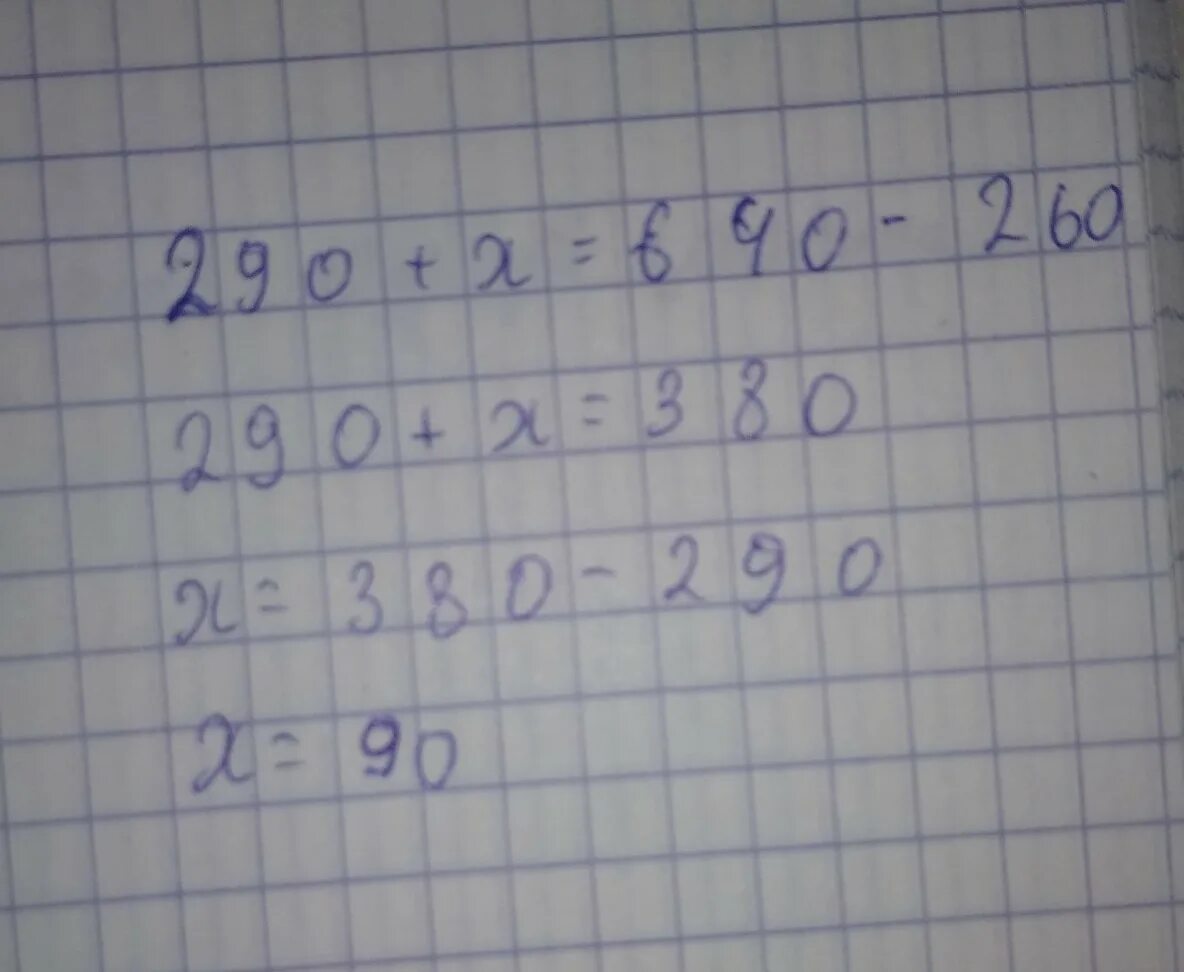 290 + x = 640 - 260
290 + x = 380
x = 380 - 290
x = 90